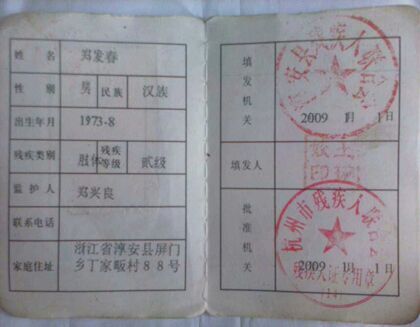 姓 名 郑发春
性 别 男 民族 汉族
出生年月 1973-8
残疾类别 肢体 残疾等级 贰级
监护人 郑兴良
联系电话
家庭住址 浙江省淳安县屏门
乡丁家畈村88号
填发机关
淳安县残疾人联合会
2009 1月 1日
填发人
批准机关
杭州市残疾人联合会
2009 1月 1日
残疾人证专用章